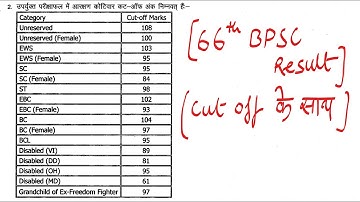 2. उपर्युक्त परीक्षाफल में आरक्षण कोटिवार कट-ऑफ अंक निम्नवत् है:-
Category Cut-off Marks
Unreserved 108
Unreserved (Female) 100
EWS 103
EWS (Female) 95
SC 95
SC (Female) 84
ST 98
EBC 102
EBC (Female) 93
BC 104
BC (Female) 97
BCL 95
Disabled (VI) 89
Disabled (DD) 81
Disabled (OH) 95
Disabled (MD) 61
Grandchild of Ex-Freedom Fighter 97
[66th BPSC
Result]
(Cut off के साथ)